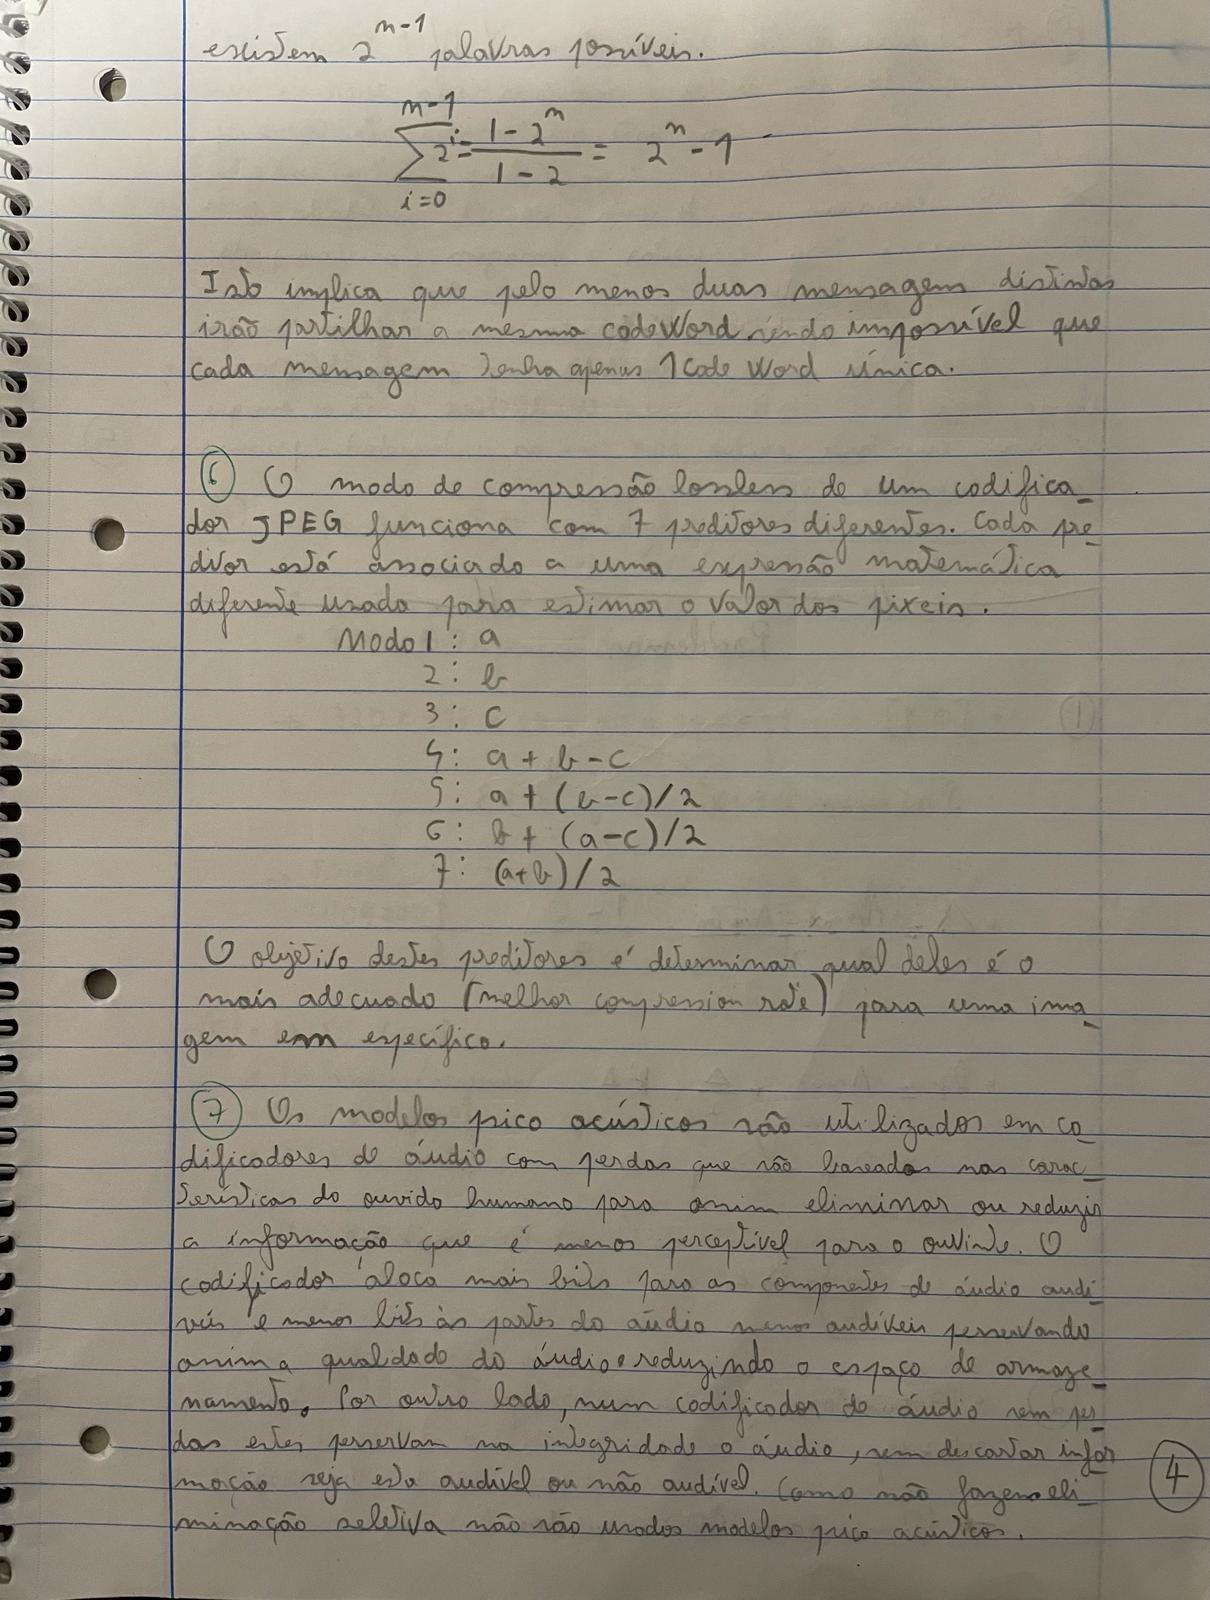 existem 2^(n-1) palavras possíveis.
n-1
∑ 2^i = (1-2^n)/(1-2) = 2^n - 1
i=0
Isto implica que pelo menos duas mensagens distintas
irão partilhar a mesma codeWord sendo impossível que
cada mensagem tenha apenas 1 Code Word única.
6 O modo de compressão lossless de um codifica_
dor JPEG funciona com 7 preditores diferentes. Cada pre_
ditor está associado a uma expressão matemática
diferente usada para estimar o valor dos pixeis.
Modo 1 : a
2 : b
3 : c
4 : a + b - c
5 : a + (b-c)/2
6 : b + (a-c)/2
7 : (a+b)/2
O objetivo destes preditores é determinar qual deles é o
mais adecuado (melhor compression rate) para uma ima_
gem em específico.
7 Os modelos pico acústicos são utilizados em co_
dificadores de áudio com perdas que são baseados nas carac_
terísticas do ouvido humano para assim eliminar ou reduzir
a informação que é menos perceptível para o ouvinte. O
codificador aloca mais bits para as componentes de áudio audí_
veis e menos bits às partes do aúdio menos audíveis perservando
assim a qualidade do áudio e reduzindo o espaço de armaze_
namento. Por outro lado, num codificador de áudio sem per_
das estes perservam na integridade o áudio, sem descartar infor_
mação seja esta audível ou não audível. Como não fazem eli_
minação seletiva não são usados modelos pico acústicos.
4